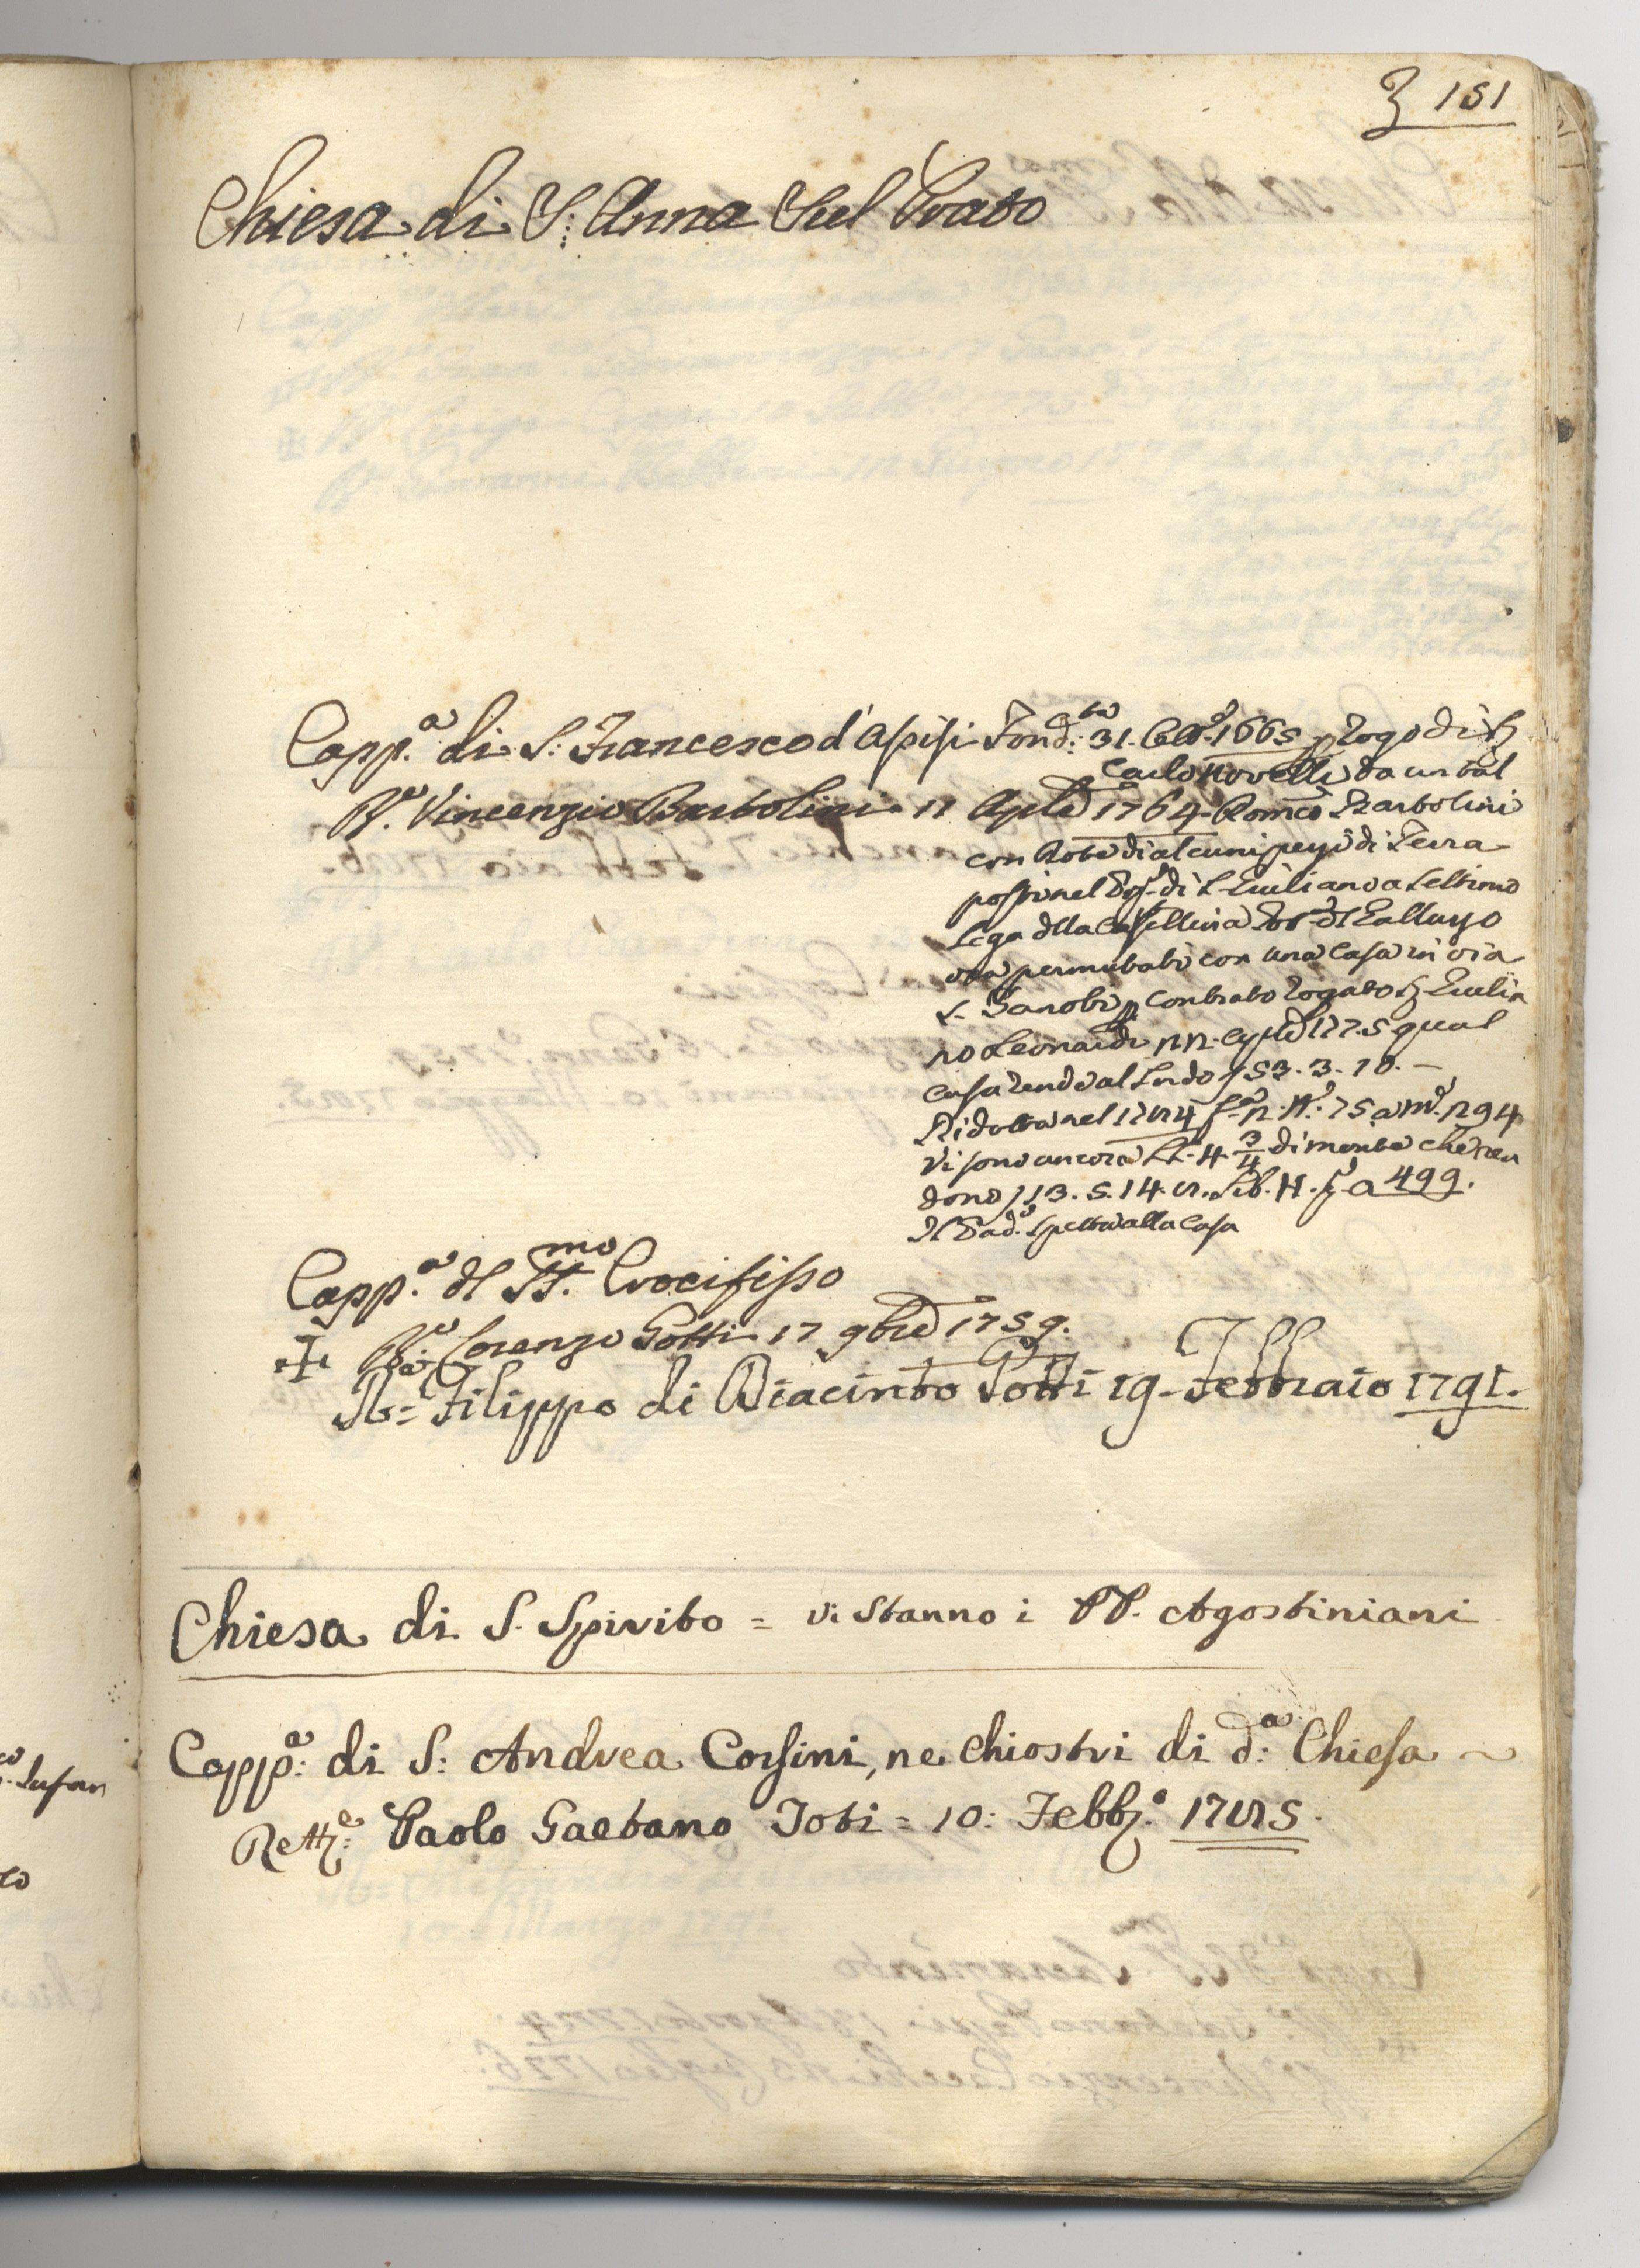 151
Chiesa di S: Anna Sul Prato
Capp.a di S: Francesco d'Assisi Fond:ta 31. 1665 p Rogo di
Carlo Novelli da un tal
R. Vincenzio Bartolini 11 Aple 1764. Romo Bartolini
con dote di alcuni pezzi di Terra
posti nel di S. Giuliano a Settimo
Lega dlla Casellina Pot. dl Galluzzo
ora permutati con una Casa in via
S. Zanobi p Contrato rogato Giulia
no Leonardi qual
Casa rende al Lordo 53. 3. 10. —
Ridotta nel 75 a
Vi sono ancora LL. 4 3/4 di monte che ren
dono 13. 5. 14. Lib. H. a 499.
Il Pad. spetta alla Casa
Capp.a dl SS.mo Crocifisso
R. Lorenzo Gotti 17 9bre 1759.
Filippo di Giacinto Gotti 19. Febbraio 1791.
Chiesa di S. Spirito = vi Stanno i PP. Agostiniani
Capp:a di S: Andrea Corsini, ne Chiostri di d:a Chiesa ~
Rett:e Paolo Gaetano Toti = 10: Febb.o